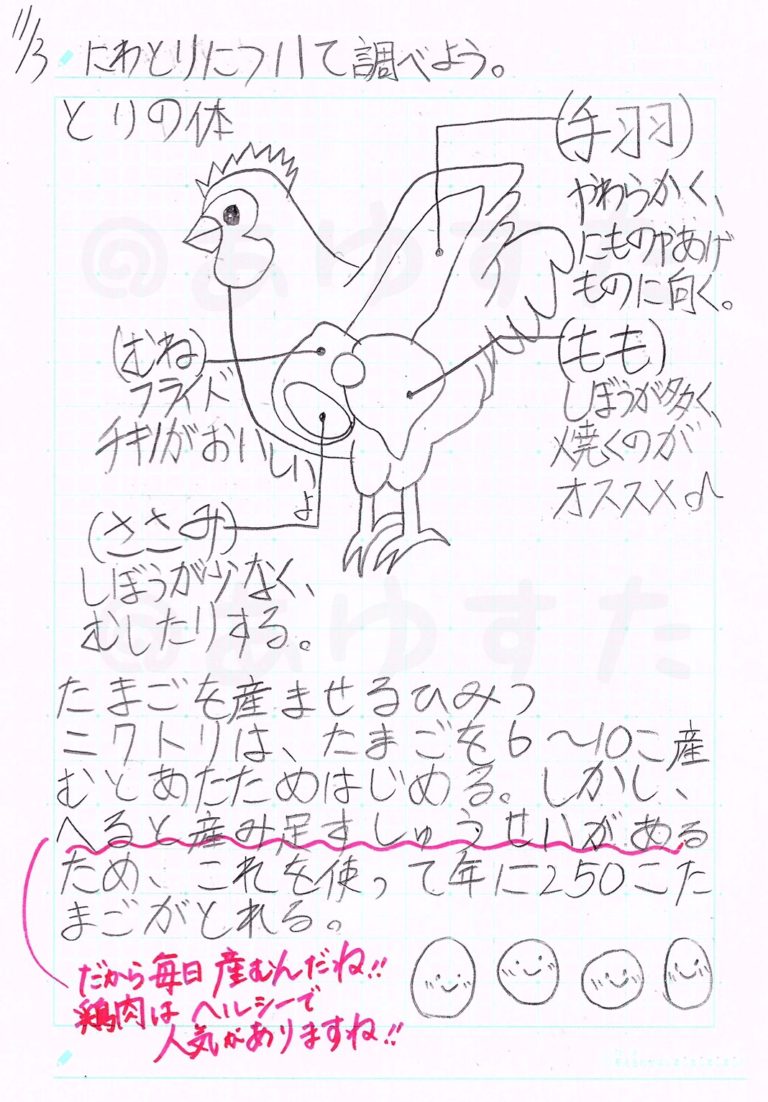 11/3
にわとりについて調べよう。
とりの体
(手羽)
やわらかく、
にものやあげ
ものに向く。
(むね)
フライド
チキンがおいしい
よ
(もも)
しぼうが多く、
焼くのが
オススメ♪
(ささみ)
しぼうが少なく、
むしたりする。
たまごを産ませるひみつ
ニワトリは、たまごを6〜10こ産
むとあたためはじめる。しかし、
へると産み足すしゅうせいがある
ため、これを使って年に250こた
まごがとれる。
だから毎日産むんだね!!
鶏肉は ヘルシーで
人気がありますね!!
@あゆすた
@あゆすた